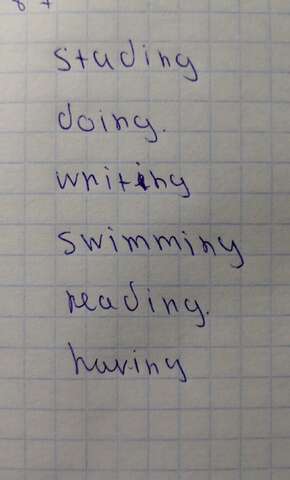 stading
doing.
writing
swimming
reading.
having